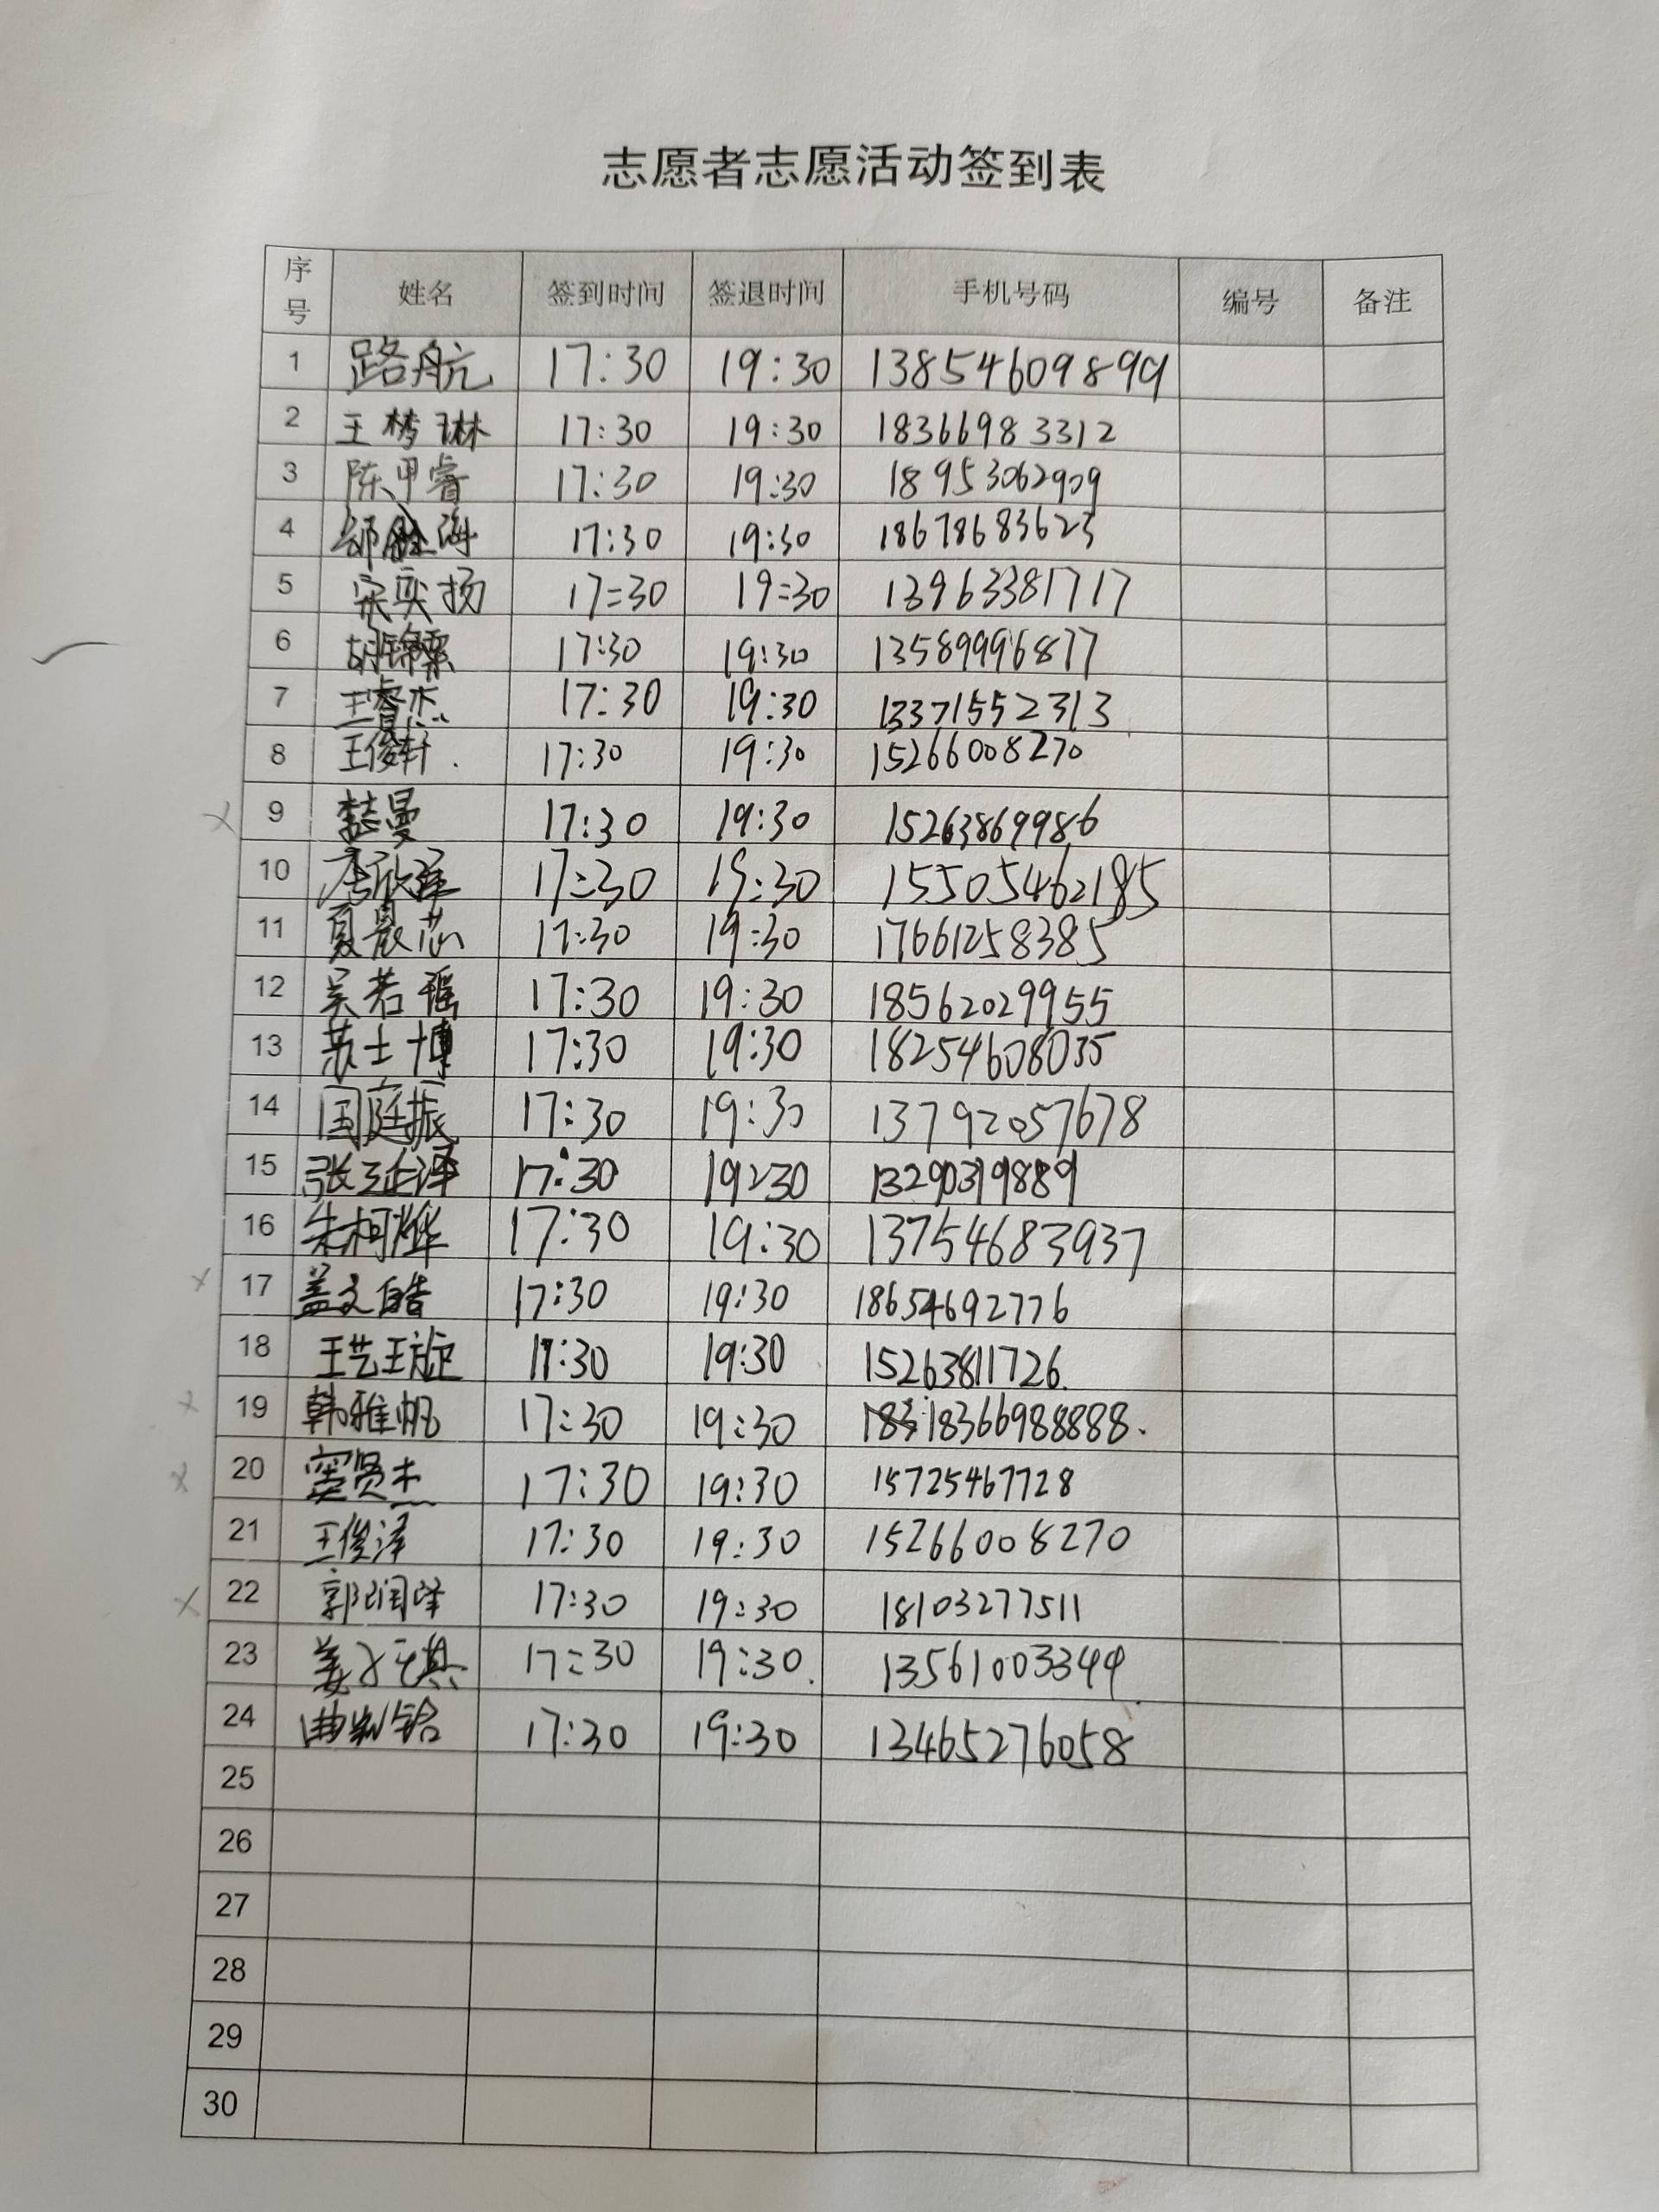 志愿者志愿活动签到表
序号 姓名 签到时间 签退时间 手机号码 编号 备注
1 路航 17:30 19:30 13854609899
2 王梦琳 17:30 19:30 18366983312
3 陈甲睿 17:30 19:30 18953062909
4 17:30 19:30 18678683623
5 宋奕扬 17:30 19:30 13963381717
6 胡锦 17:30 19:30 13589996877
7 王睿杰 17:30 19:30 13371552313
8 王俊轩 17:30 19:30 15266008270
9 17:30 19:30 15263869986
10 李欣泽 17:30 19:30 15505462185
11 夏晨芯 17:30 19:30 17661258385
12 吴若瑶 17:30 19:30 18562029955
13 苏士博 17:30 19:30 18254608035
14 国庭振 17:30 19:30 13792057678
15 张泽 17:30 19:30 13290319889
16 朱柯烨 17:30 19:30 13754683937
17 盖文皓 17:30 19:30 18654692776
18 王艺璇 17:30 19:30 15263811726
19 韩雅帆 17:30 19:30 18366988888
20 窦贤杰 17:30 19:30 15725467728
21 王俊泽 17:30 19:30 15266008270
22 郭润泽 17:30 19:30 18103277511
23 姜子琪 17:30 19:30 13561003344
24 曲 17:30 19:30 13465276058
25
26
27
28
29
30